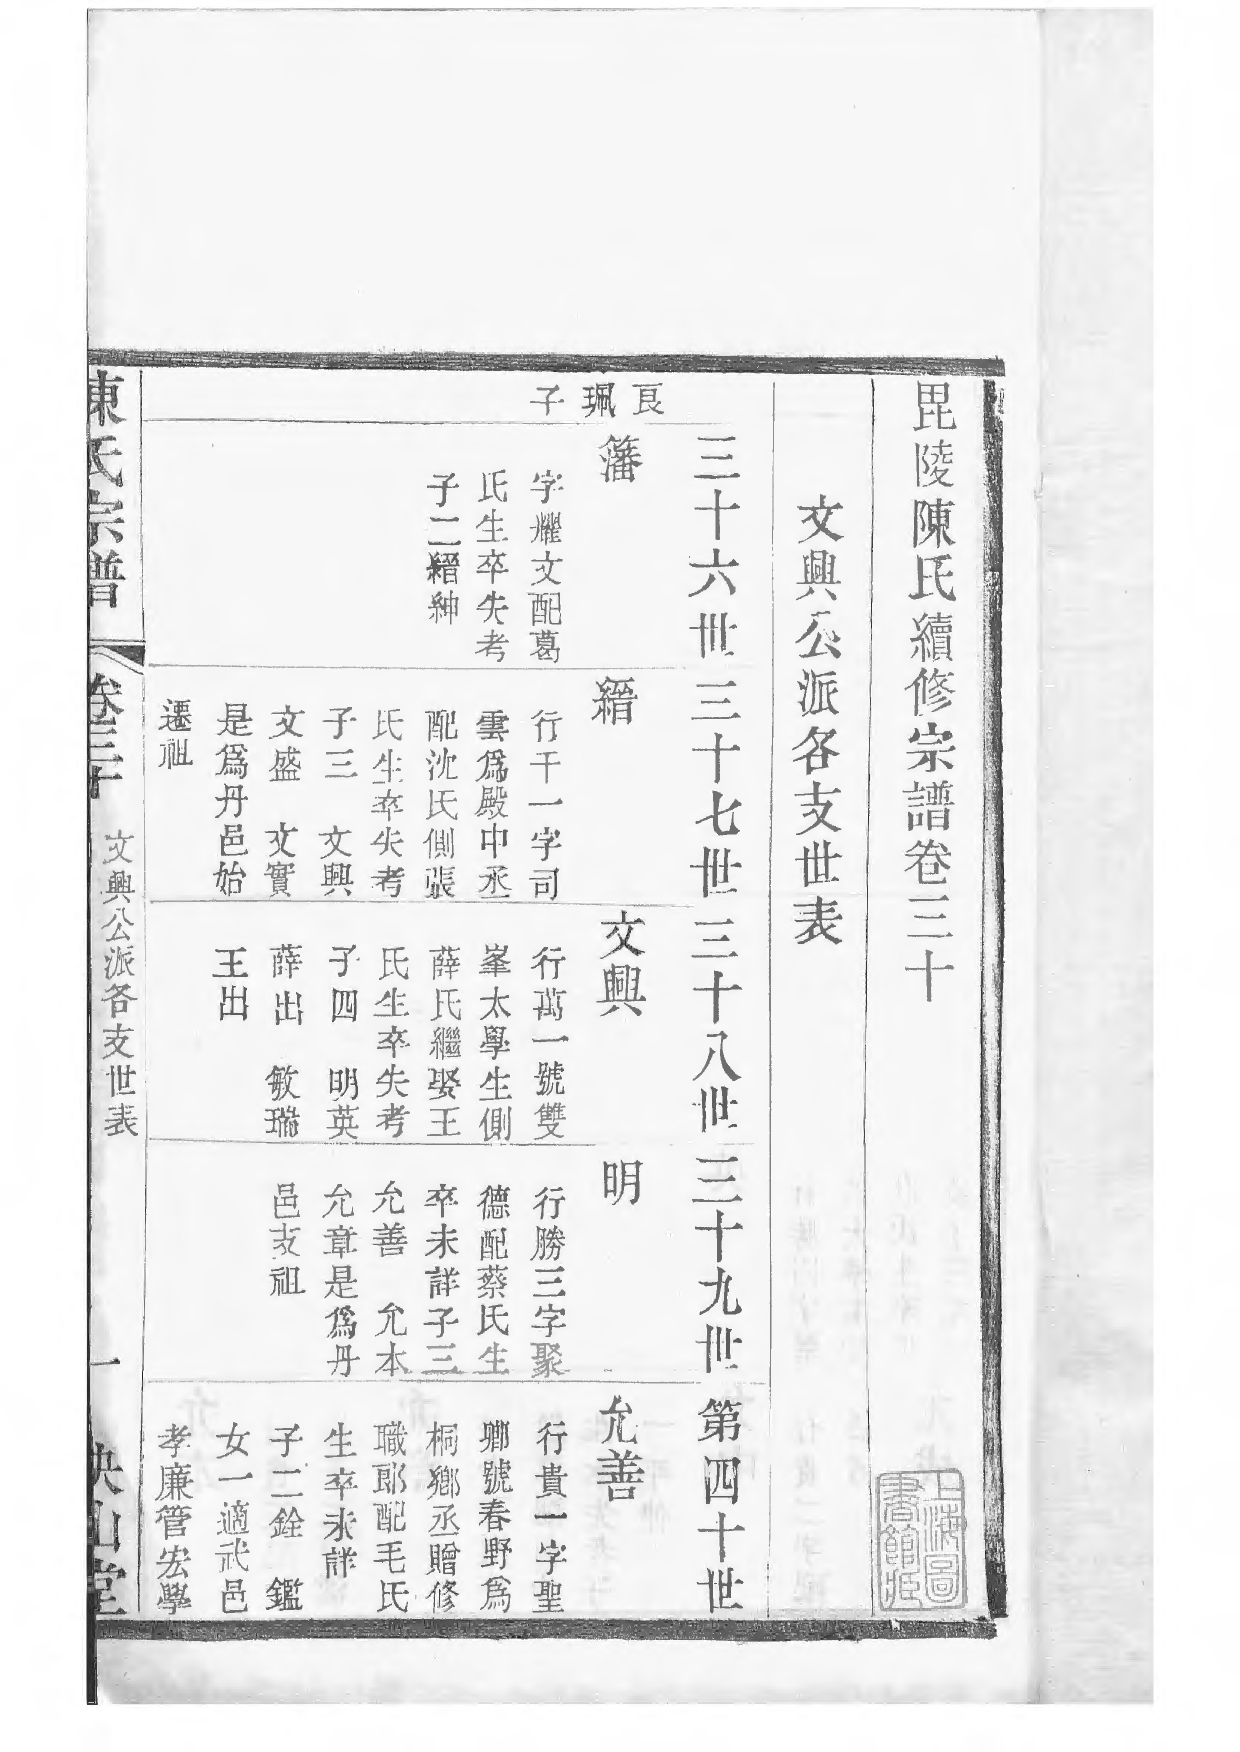 毘陵陳氏續修宗譜卷三十
文興公派各支世表
三十六世
三十七世
三十八世
三十九世
第四十世
良珮子
籓
字燿文配葛
氏生卒失考
子二縉紳
縉
行千一字司
雲爲殿中丞
配沈氏側張
氏生卒失考
子三 文興
文盛 文實
是爲丹邑始
遷祖
文興
行萬一號雙
峯太學生側
薛氏繼娶王
氏生卒失考
子四 明英
薛出 敏瑞
王出
明
行勝三字聚
德配蔡氏生
卒未詳子三
允善 允本
允章是爲丹
邑支祖
允善
行貴一字聖
卿號春野爲
桐鄉丞贈修
職郎配毛氏
生卒未詳
子二銓 鑑
女一適武邑
孝廉管宏學
陳氏宗譜
卷三十
文興公派各支世表
一
映山堂
上海圖書館藏